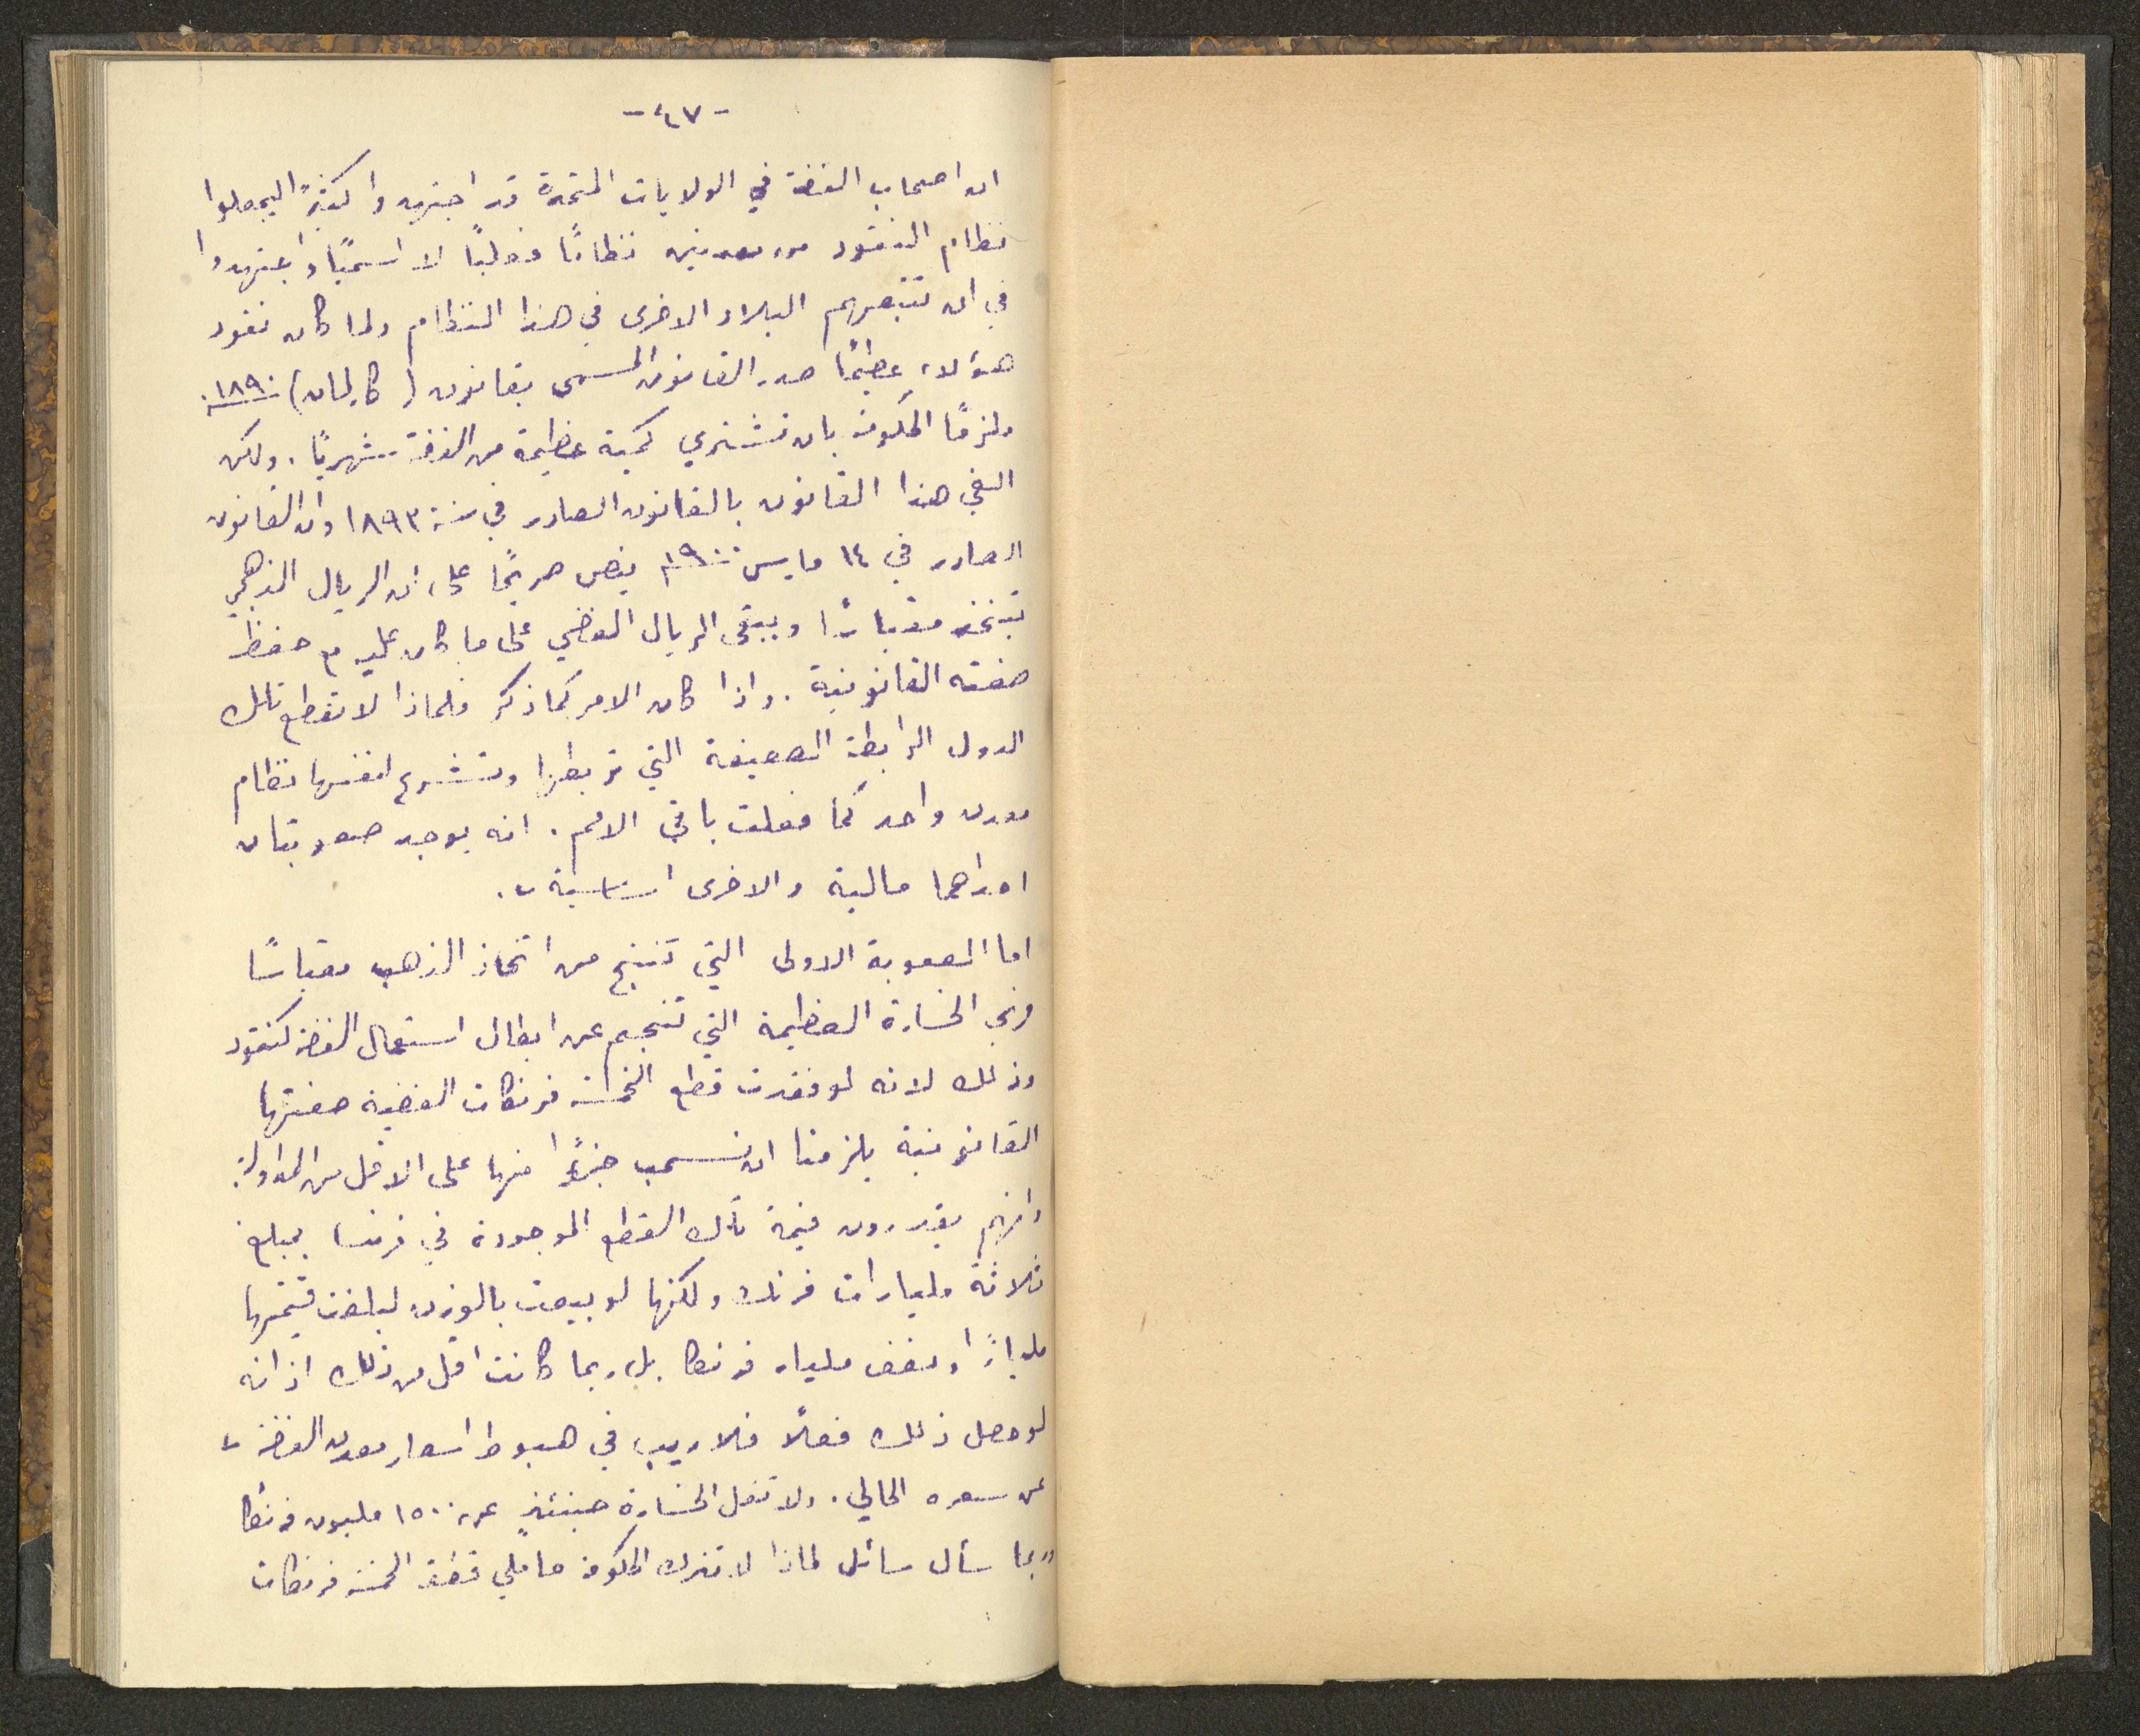 -٤٧-
ان اصحاب الفضة في الولايات المتحدة قد اجتهدوا كثيرًا ليجعلوا
نظام النقود من معدنين نظامًا فعليًا لا اسميًا واجتهدوا
في ان تتبعهم البلاد الاخرى في هذا النظام ولما كان نفوذ
هؤلاء عظيمًا صدر القانون المسمى بقانون ( ) ١٨٩٠
ملزمًا الحكومة بان تشتري كمية عظيمة من الفضة شهريًا . ولكن
الغي هذا القانون بالقانون الصادر في سنة ١٨٩٣ وان القانون
الصادر في ١٤ مايس ١٩٠٠ ينص صريحًا على ان الريال الذهبي
يتخذ مقياسًا ويبقى الريال الفضي على ما كان عليه مع حفظ
صفته القانونية . واذا كان الامر كما ذكر فلماذا لا تقطع تلك
الدول الرابطة الضعيفة التي تربطها وتشرع لنفسها نظام
معدن واحد كما فعلت باقي الامم . انه يوجد صعوبتان
احداهما مالية والاخرى اساسية .
اما الصعوبة الاولى التي تنتج من اتخاذ الذهب مقياسًا
فهي الخسارة العظيمة التي تنجم عن ابطال استعمال الفضة كنقود
وذلك لانه لو فقدت قطع الخمسة فرنكات الفضية صفتها
القانونية يلزمنا ان نسحب جزءًا منها على الاقل من المداولة
وانهم يقدرون قيمة تلك القطع الموجودة في فرنسا بمبلغ
ثلاثة مليارات فرنك ولكنها لو بيعت بالوزن لبلغت قيمتها
مليارًا ونصف مليار فرنكا بل ربما كانت اقل من ذلك اذ انه
لو حصل ذلك فعلًا فلا ريب في هبوط اسعار معدن الفضة
عن سعره الحالي . ولا تقل الخسارة حينئذٍ عن ١٥٠٠ مليون فرنكا
وربما سأل سائل لماذا لا تترك الحكومة حاملي قطع الخمسة فرنكات